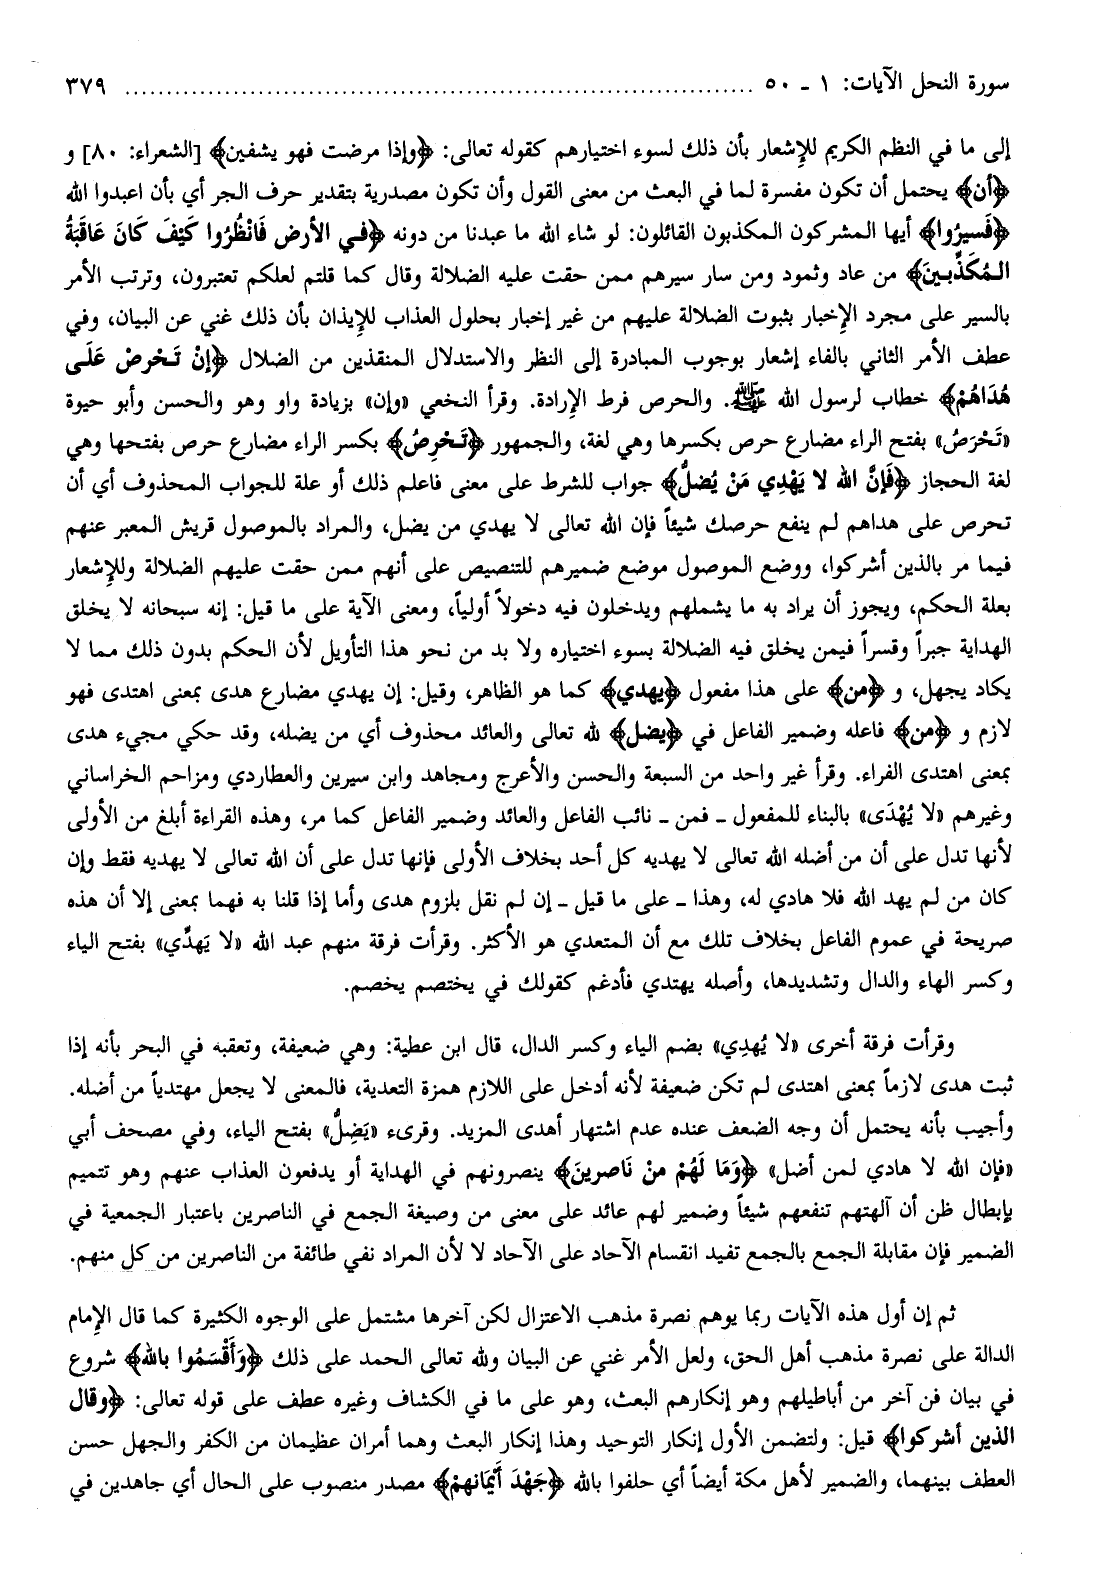 سورة النحل الآيات: ١ ـ ٥٠ ........................................................................... ٣٧٩
إلى ما في النظم الكريم للإشعار بأن ذلك لسوء اختيارهم كقوله تعالى: ﴿وإذا مرضت فهو يشفين﴾ [الشعراء: ٨٠] و
﴿أن﴾ يحتمل أن تكون مفسرة لما في البعث من معنى القول وأن تكون مصدرية بتقدير حرف الجر أي بأن اعبدوا الله
﴿فَسيرُوا﴾ أيها المشركون المكذبون القائلون: لو شاء الله ما عبدنا من دونه ﴿في الأرض فَانْظُرُوا كَيْفَ كَانَ عَاقبَةُ
الـمُكَذِّبينَ﴾ من عاد وثمود ومن سار سيرهم ممن حقت عليه الضلالة وقال كما قلتم لعلكم تعتبرون، وترتب الأمر
بالسير على مجرد الإخبار بثبوت الضلالة عليهم من غير إخبار بحلول العذاب للإيذان بأن ذلك غني عن البيان، وفي
عطف الأمر الثاني بالفاء إشعار بوجوب المبادرة إلى النظر والاستدلال المنقذين من الضلال ﴿إنْ تَـحْرصْ عَلَى
هُدَاهُمْ﴾ خطاب لرسول الله ﷺ. والحرص فرط الإرادة. وقرأ النخعي «وإن» بزيادة واو وهو والحسن وأبو حيوة
«تَحْرَصْ» بفتح الراء مضارع حرص بكسرها وهي لغة، والجمهور ﴿تَـحْرِصْ﴾ بكسر الراء مضارع حرص بفتحها وهي
لغة الحجاز ﴿فَإنَّ الله لا يَهْدِي مَنْ يُضلُّ﴾ جواب للشرط على معنى فاعلم ذلك أو علة للجواب المحذوف أي أن
تحرص على هداهم لم ينفع حرصك شيئاً فإن الله تعالى لا يهدي من يضل، والمراد بالموصول قريش المعبر عنهم
فيما مر بالذين أشركوا، ووضع الموصول موضع ضميرهم للتنصيص على أنهم ممن حقت عليهم الضلالة وللإشعار
بعلة الحكم، ويجوز أن يراد به ما يشملهم ويدخلون فيه دخولاً أولياً، ومعنى الآية على ما قيل: إنه سبحانه لا يخلق
الهداية جبراً وقسراً فيمن يخلق فيه الضلالة بسوء اختياره ولا بد من نحو هذا التأويل لأن الحكم بدون ذلك مما لا
يكاد يجهل، و ﴿من﴾ على هذا مفعول ﴿يهدي﴾ كما هو الظاهر، وقيل: إن يهدي مضارع هدى بمعنى اهتدى فهو
لازم و ﴿من﴾ فاعله وضمير الفاعل في ﴿يضل﴾ لله تعالى والعائد محذوف أي من يضله، وقد حكي مجيء هدى
بمعنى اهتدى الفراء. وقرأ غير واحد من السبعة والحسن والأعرج ومجاهد وابن سيرين والعطاردي ومزاحم الخراساني
وغيرهم «لا يُهْدَى» بالبناء للمفعول ـ فمن ـ نائب الفاعل والعائد وضمير الفاعل كما مر، وهذه القراءة أبلغ من الأولى
لأنها تدل على أن من أضله الله تعالى لا يهديه كل أحد بخلاف الأولى فإنها تدل على أن الله تعالى لا يهديه فقط وإن
كان من لم يهد الله فلا هادي له، وهذا ـ على ما قيل ـ إن لم نقل بلزوم هدى وأما إذا قلنا به فهما بمعنى إلا أن هذه
صريحة في عموم الفاعل بخلاف تلك مع أن المتعدي هو الأكثر. وقرأت فرقة منهم عبد الله «لا يَهدِّي» بفتح الياء
وكسر الهاء والدال وتشديدها، وأصله يهتدي فأدغم كقولك في يختصم يخصم.
وقرأت فرقة أخرى «لا يُهدِي» بضم الياء وكسر الدال، قال ابن عطية: وهي ضعيفة، وتعقبه في البحر بأنه إذا
ثبت هدى لازماً بمعنى اهتدى لم تكن ضعيفة لأنه أدخل على اللازم همزة التعدية، فالمعنى لا يجعل مهتدياً من أضله.
وأجيب بأنه يحتمل أن وجه الضعف عنده عدم اشتهار أهدى المزيد. وقرىء «يَضِلُّ» بفتح الياء، وفي مصحف أبي
«فإن الله لا هادي لمن أضل» ﴿وَمَا لَهُمْ منْ نَاصرينَ﴾ ينصرونهم في الهداية أو يدفعون العذاب عنهم وهو تتميم
بإبطال ظن أن آلهتهم تنفعهم شيئاً وضمير لهم عائد على معنى من وصيغة الجمع في الناصرين باعتبار الجمعية في
الضمير فإن مقابلة الجمع بالجمع تفيد انقسام الآحاد على الآحاد لا لأن المراد نفي طائفة من الناصرين من كل منهم.
ثم إن أول هذه الآيات ربما يوهم نصرة مذهب الاعتزال لكن آخرها مشتمل على الوجوه الكثيرة كما قال الإمام
الدالة على نصرة مذهب أهل الحق، ولعل الأمر غني عن البيان ولله تعالى الحمد على ذلك ﴿وَأَقْسَمُوا بالله﴾ شروع
في بيان فن آخر من أباطيلهم وهو إنكارهم البعث، وهو على ما في الكشاف وغيره عطف على قوله تعالى: ﴿وقال
الذين أشركوا﴾ قيل: ولتضمن الأول إنكار التوحيد وهذا إنكار البعث وهما أمران عظيمان من الكفر والجهل حسن
العطف بينهما، والضمير لأهل مكة أيضاً أي حلفوا بالله ﴿جَهْدَ أَيْمَانهمْ﴾ مصدر منصوب على الحال أي جاهدين في